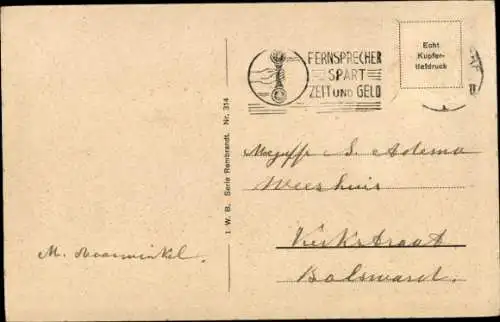 FERNSPRECHER
SPART
ZEIT UND GELD
Echt
Kupfer-
tiefdruck
I. W. B. Serie Rembrandt. Nr. 314
Mejuffr S. Adema
Weeshuis
Kerkstraat
Bolsward.
M. Moorwinkel.